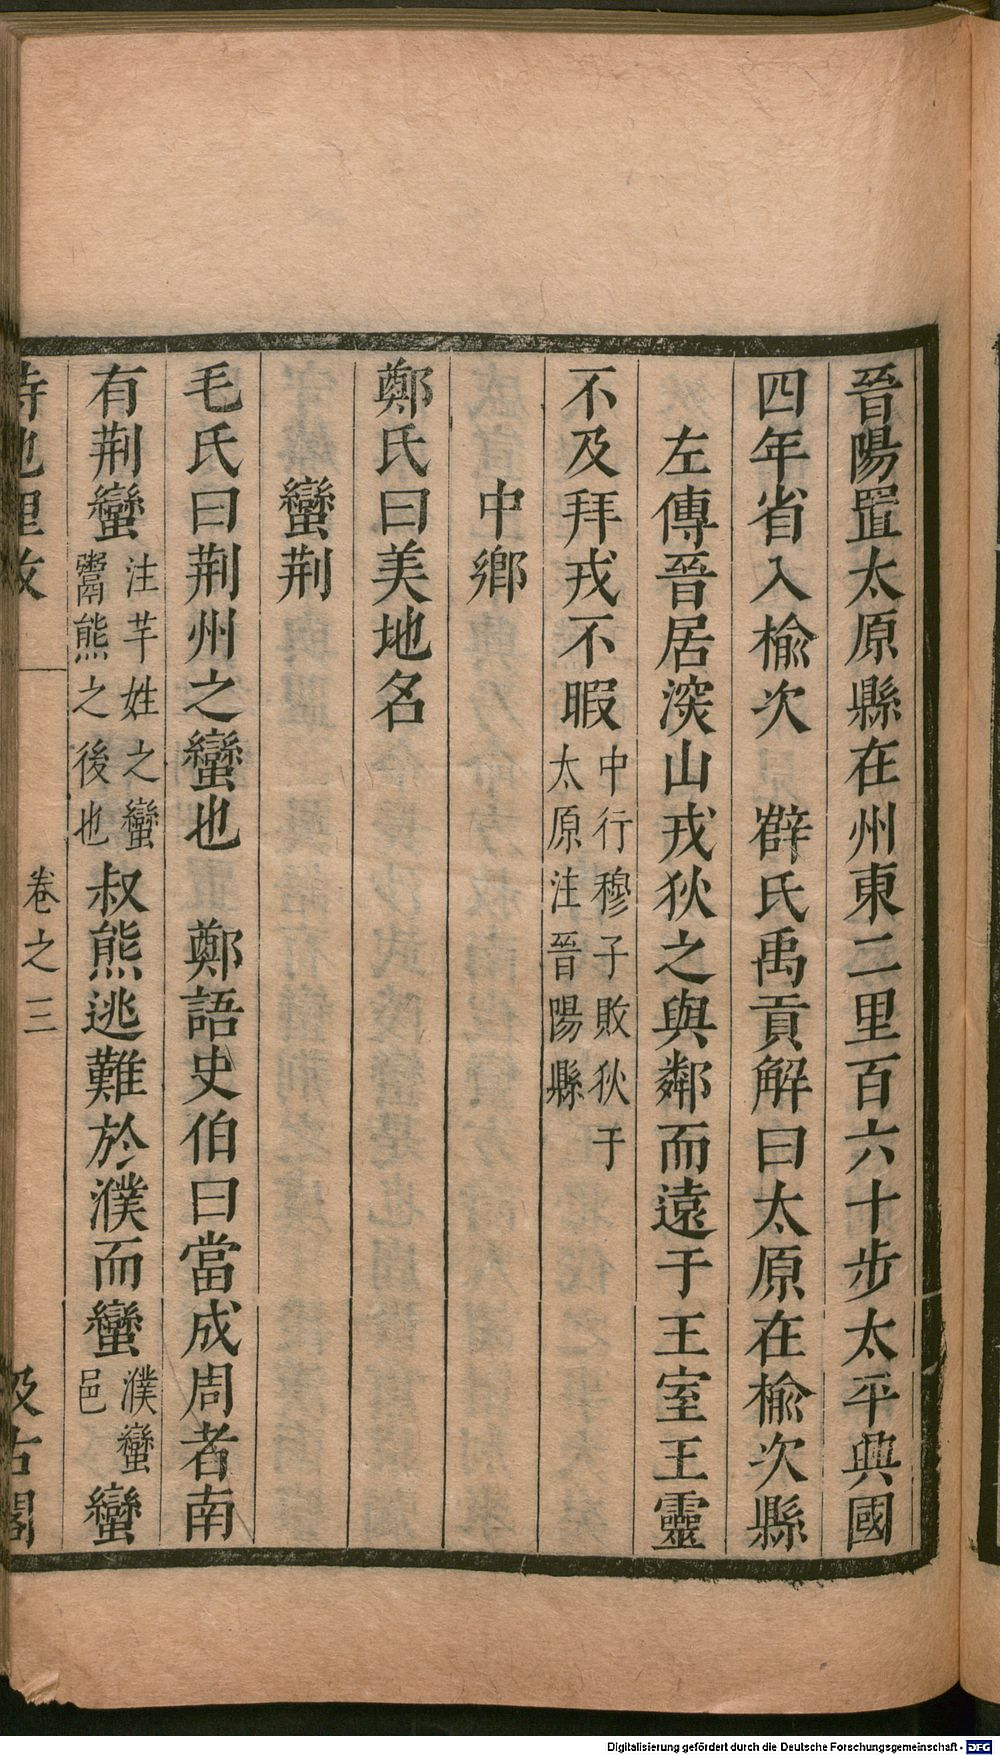 晉陽置太原縣在州東二里百六十步太平興國
四年省入榆次　薛氏禹貢解曰太原在榆次縣
左傳晉居深山戎狄之與鄰而遠于王室王靈
不及拜戎不暇中行穆子敗狄于太原注晉陽縣
中鄉
鄭氏曰美地名
蠻荆
毛氏曰荆州之蠻也　鄭語史伯曰當成周者南
有荆蠻注芊姓之蠻鬻熊之後也叔熊逃難於濮而蠻濮蠻邑蠻
詩地里攷　卷之三　汲古閣
Digitalisierung gefördert durch die Deutsche Forschungsgemeinschaft - DFG